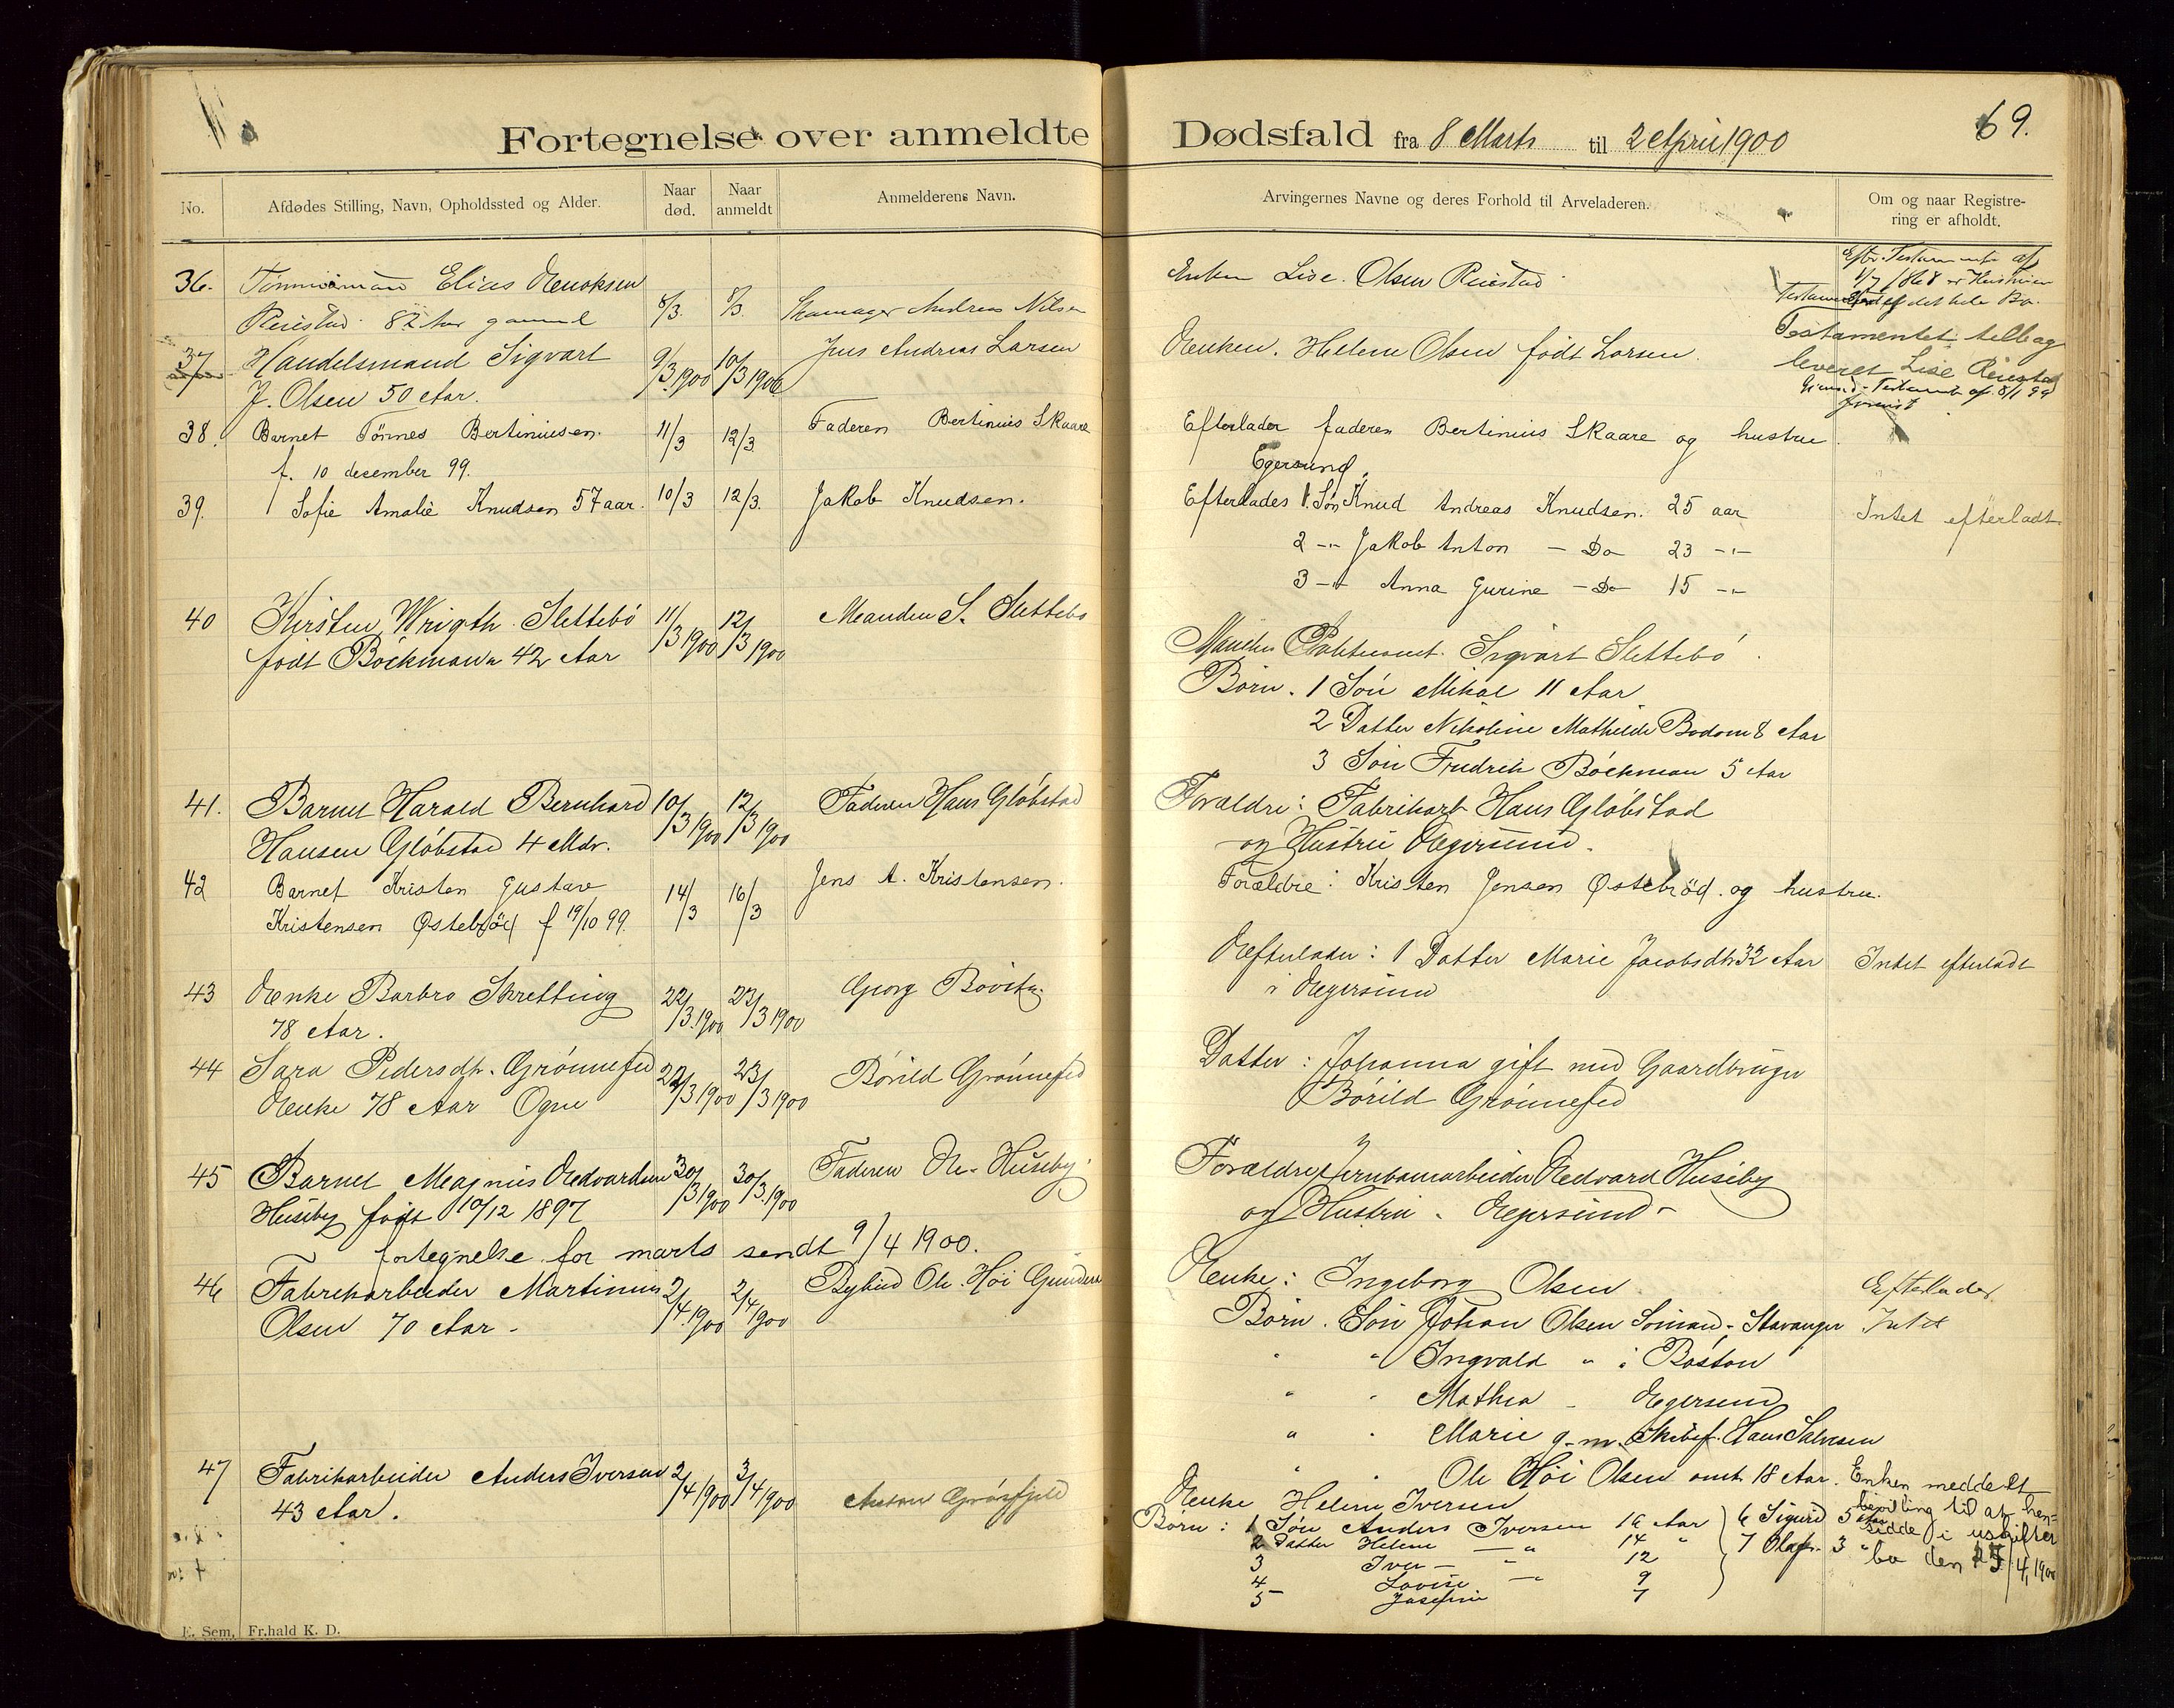 Fortegnelse over anmeldte Dødsfald fra 8 Marts til 2 April 1900
69.
No.
Afdødes Stilling, Navn, Opholdssted og Alder.
Naar død.
Naar anmeldt
Anmelderens Navn.
Arvingernes Navne og deres Forhold til Arveladeren.
Om og naar Registre-
ring er afholdt.
36. Tømmermand Elias Enoksen
Reiestad 82 Aar gammel 8/3. 8/3. Skomager Andreas Nilsen
Enken Lise Olsen Reiestad
Eftr. Testamente af
1/7 1868 er Hustruen
det hele Bo.
Testamentet tilbag
leveret Lise Reiestad
Testamente af 8/1 99
37 Handelsmand Sigvart 9/3 1900 10/3 1900 Jens Andreas Larsen
J. Olsen 50 Aar.
Enken. Helene Olsen født Larsen.
38. Barnet Tønnes Bertiniusen. 11/3 12/3. Faderen Bertinius Skaare
f. 10 december 99.
Efterlader faderen Bertinius Skaare og hustru.
Egersund.
39. Sofie Amalie Knudsen 57 aar. 10/3 12/3. Jakob Knudsen.
Efterlades 1. Søn Knud Andreas Knudsen. 25 aar
2 -"- Jakob Anton - Do - 23 -"-
3 -"- Anna Gurine - Do - 15 -"-
Intet efterladt
40 Kirsten Wrigth Slettebö 11/3 1900 12/3 1900 Manden S. Slettebö
født Böckmann 42 Aar
Manden Sigvart Slettebö
Børn. 1 Søn Mikal 11 Aar
2 Datter Nikoline Mathilde Bodom 8 Aar
3 Søn Fredrik Böckman 5 Aar
41. Barnet Harald Bernhard 10/3 1900 12/3 1900 Faderen Hans Glöbstad
Hansen Glöbstad 4 Mdr.
Forældre: Fabrikarb Hans Glöbstad
og Hustru Egersund.
42 Barnet Kristen Gustav 14/3 16/3 Jens A. Kristensen.
Kristensen Østebrød f 19/10 99.
Forældre: Kristen Jensen Østebrød. og hustru.
43 Enke Barbro Skretting 22/3 1900 23/3 1900 Georg
78 Aar.
Efterlader: 1 Datter Marie Jacobsdtr 32 Aar
i Egersund
Intet efterladt
44 Sara Pedersdtr. Grönnesfed 22/3 1900 23/3 1900 Börild Grönnesfed
Enke 78 Aar Ogne
Datter: Johanna gift med Gaardbruger
Börild Grönnesfed
45 Barnet Magnus Edvardsen 30/3 1900 30/3 1900 Faderen E. Huseby
Huseby født 10/12 1897
Forældre Jernbanearbeider Edvard Huseby
og Hustru. Egersund -
fortegnelse for marts sendt 9/4 1900.
46 Fabrikarbeider Martinius 2/4 1900 2/4 1900 Bybud Ole Höi
Olsen 70 Aar -
Enke: Ingeborg Olsen
Børn. Søn Johan Olsen Sömand - Stavanger
" " Ingvald " i Boston
" " Mathea - Egersund
" " Marie g. m. Hans Salvesen
" " Ole Höi Olsen omt. 18 Aar.
Efterlader
Intet
47 Fabrikarbeider Anders Iversen 2/4 1900 3/4 1900 Anton
43 Aar.
Enke Helene Iversen
Børn: 1 Søn Anders Iversen 16 Aar
2 Datter Helene - " 14 "
3 Iver - " 12
4 Lovise - " 9
5 Josefine 7
6 Sigurd 5 Aar
7 Olaf 3 "
Enken meddelt
bevilling til at hen-
sidde i uskiftet
bo den 25/4, 1900
E. Sem, Fr.hald K. D.